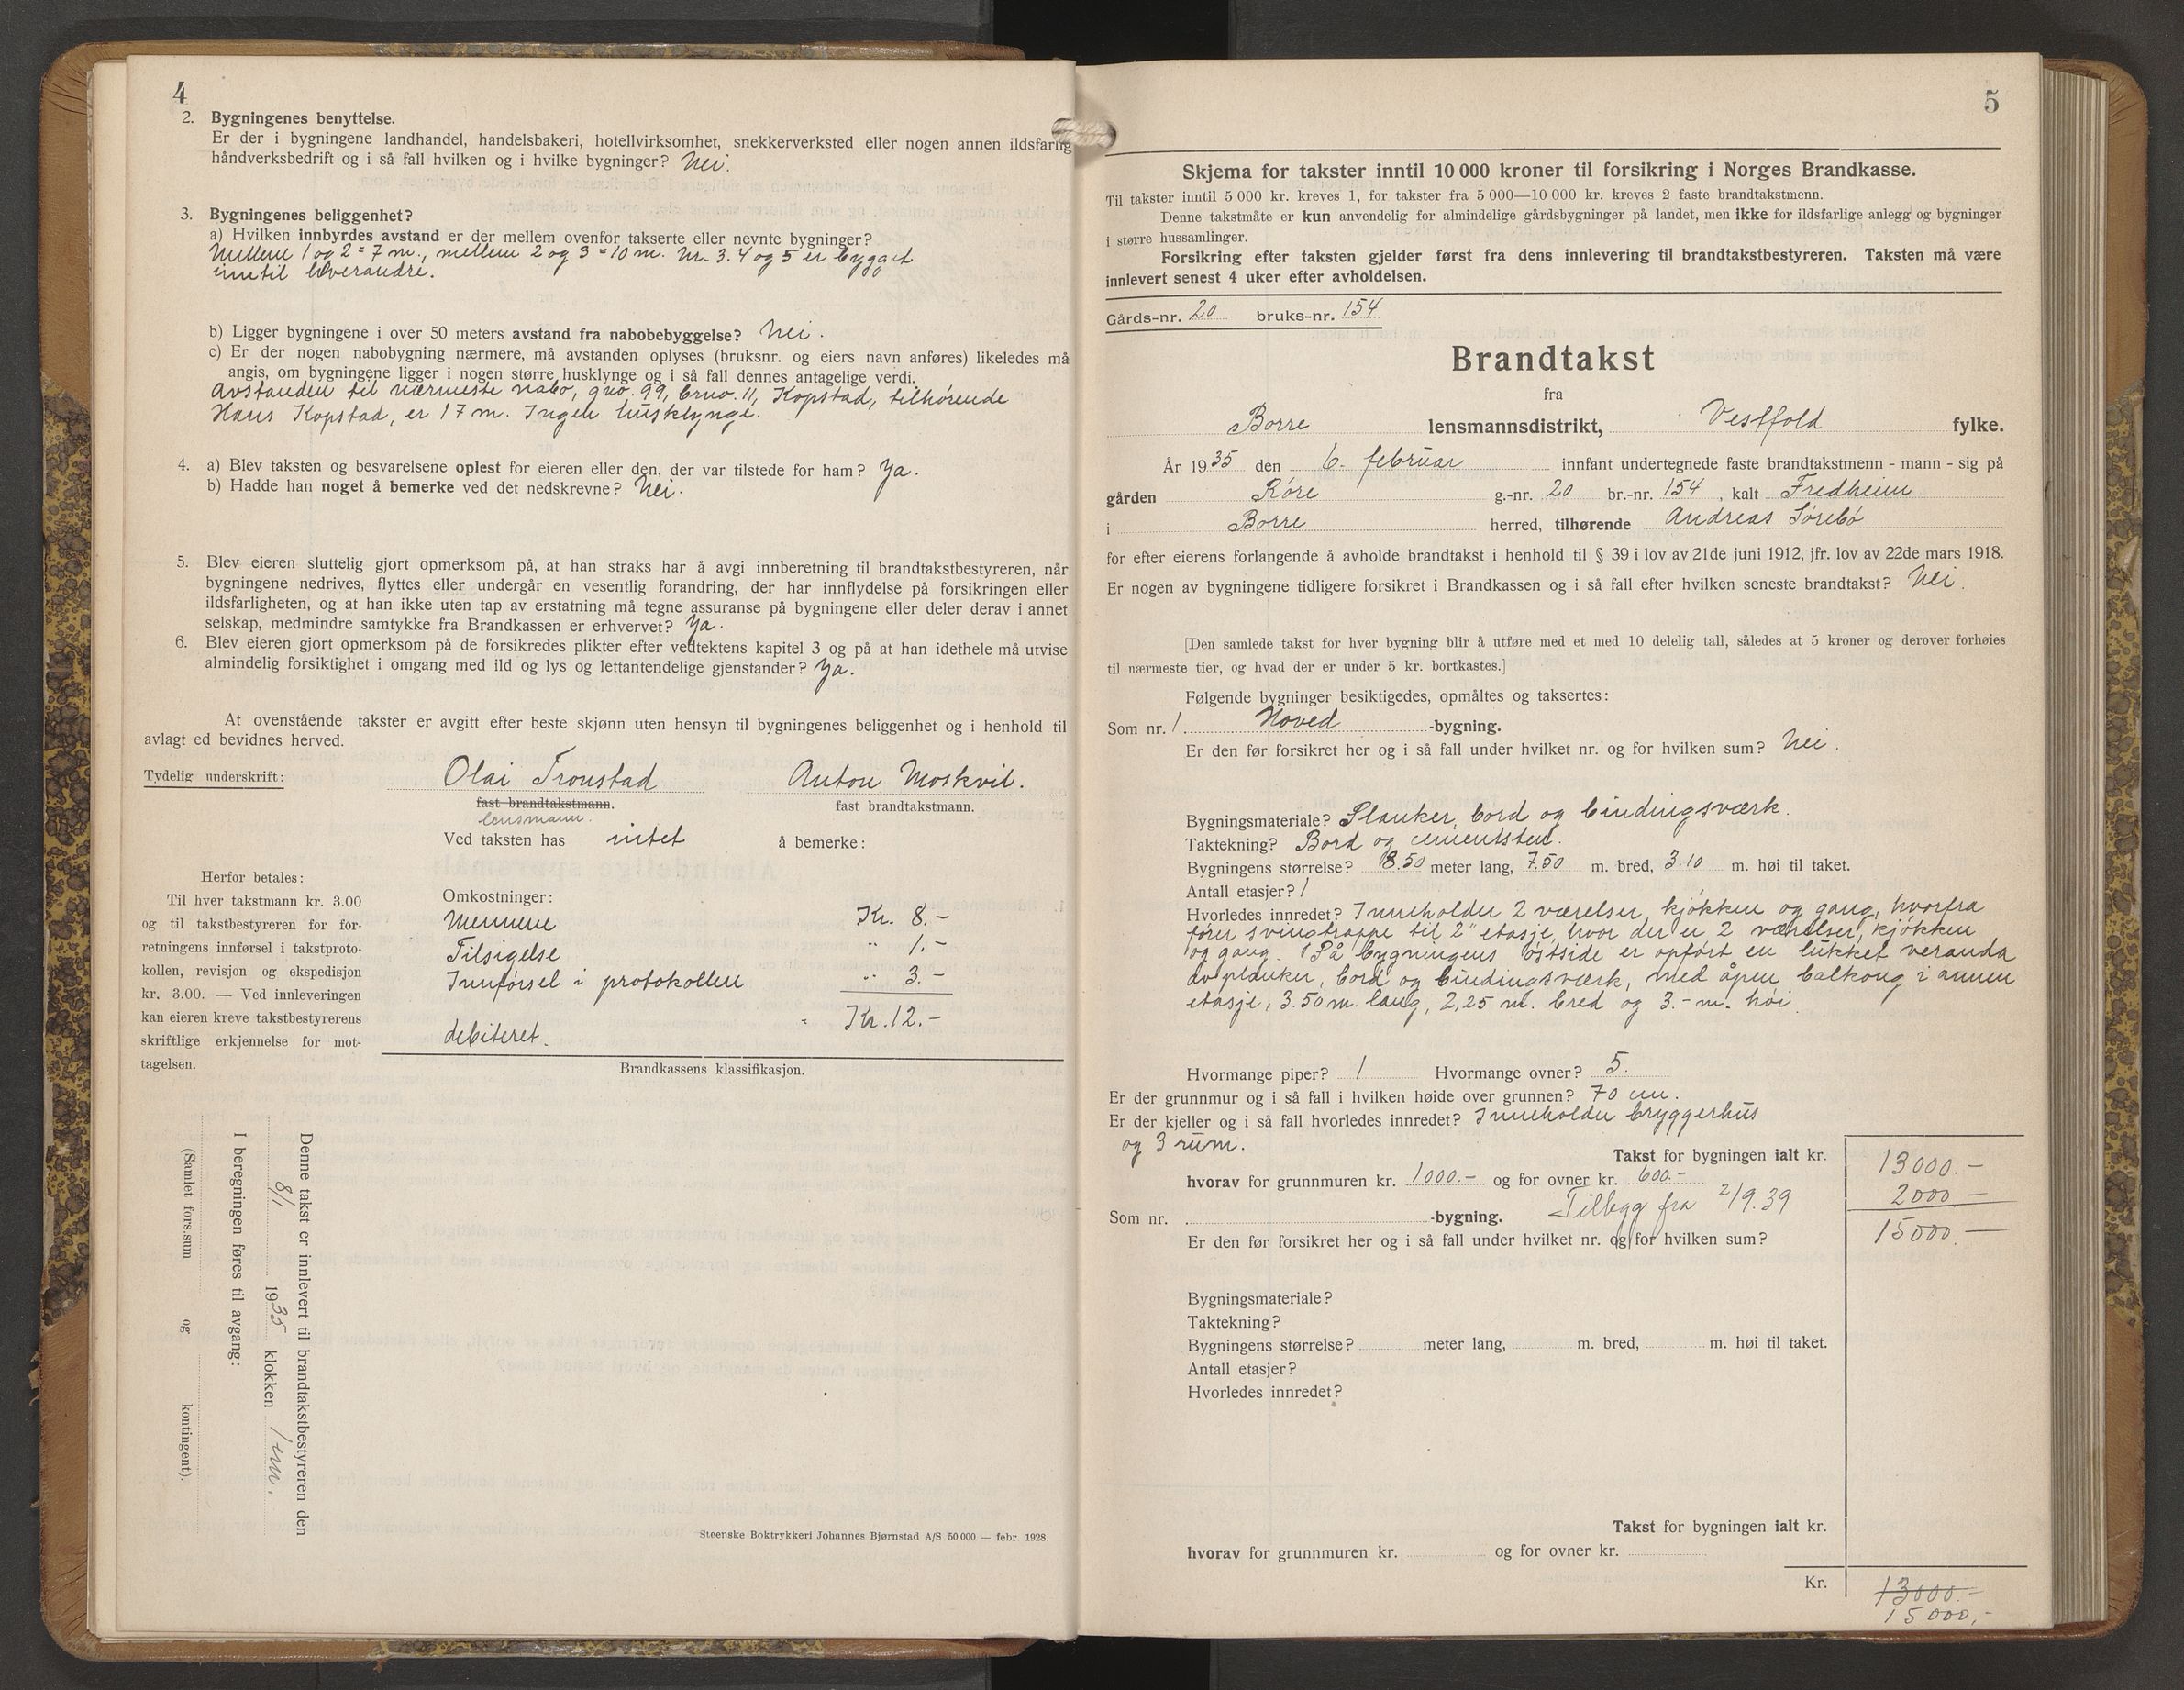 4
2. Bygningenes benyttelse.
Er der i bygningene landhandel, handelsbakeri, hotellvirksomhet, snekkerverksted eller nogen annen ildsfarlig
håndverksbedrift og i så fall hvilken og i hvilke bygninger? Nei.
3. Bygningenes beliggenhet?
a) Hvilken innbyrdes avstand er der mellem ovenfor takserte eller nevnte bygninger?
Mellem 1 og 2 = 7 m., mellem 2 og 3 = 10 m. Nr. 3. 4 og 5 er bygget
inntil hverandre.
b) Ligger bygningene i over 50 meters avstand fra nabobebyggelse? Nei.
c) Er der nogen nabobygning nærmere, må avstanden oplyses (bruksnr. og eiers navn anføres) likeledes må
angis, om bygningene ligger i nogen større husklynge og i så fall dennes antagelige verdi.
Avstanden til nærmeste nabo, gno. 99, brno. 11, Kopstad, tilhørende
Hans Kopstad, er 17 m. Ingen husklynge.
4. a) Blev taksten og besvarelsene oplest for eieren eller den, der var tilstede for ham? Ja.
b) Hadde han noget å bemerke ved det nedskrevne? Nei.
5. Blev eieren sluttelig gjort opmerksom på, at han straks har å avgi innberetning til brandtakstbestyreren, når
bygningene nedrives, flyttes eller undergår en vesentlig forandring, der har innflydelse på forsikringen eller
ildsfarligheten, og at han ikke uten tap av erstatning må tegne assuranse på bygningene eller deler derav i annet
selskap, medmindre samtykke fra Brandkassen er erhvervet? Ja.
6. Blev eieren gjort opmerksom på de forsikredes plikter efter vedtektens kapitel 3 og på at han idethele må utvise
almindelig forsiktighet i omgang med ild og lys og lettantendelige gjenstander? Ja.
At ovenstående takster er avgitt efter beste skjønn uten hensyn til bygningenes beliggenhet og i henhold til
avlagt ed bevidnes herved.
Tydelig underskrift: Olai Tronstad Anton Moskvil.
fast brandtakstmann. fast brandtakstmann.
lensmann.
Ved taksten has intet å bemerke:
Herfor betales:
Til hver takstmann kr. 3.00
og til takstbestyreren for for-
retningens innførsel i takstproto-
kollen, revisjon og ekspedisjon
kr. 3.00. — Ved innleveringen
kan eieren kreve takstbestyrerens
skriftlige erkjennelse for mot-
tagelsen.
Omkostninger:
Mennene Kr. 8.-
Tilsigelse " 1.-
Innførsel i protokollen " 3.-
Kr. 12.-
debiteret.
Brandkassens klassifikasjon.
Denne takst er innlevert til brandtakstbestyreren den
8/1 1935 klokken 1 em.
I beregningen føres til avgang:
(Samlet fors.sum og kontingent).
Steenske Boktrykkeri Johannes Bjørnstad A/S 50 000 — febr. 1928.
5
Skjema for takster inntil 10 000 kroner til forsikring i Norges Brandkasse.
Til takster inntil 5 000 kr. kreves 1, for takster fra 5 000—10 000 kr. kreves 2 faste brandtakstmenn.
Denne takstmåte er kun anvendelig for almindelige gårdsbygninger på landet, men ikke for ildsfarlige anlegg og bygninger
i større hussamlinger.
Forsikring efter taksten gjelder først fra dens innlevering til brandtakstbestyreren. Taksten må være
innlevert senest 4 uker efter avholdelsen.
Gårds-nr. 20 bruks-nr. 154
Brandtakst
fra
Borre lensmannsdistrikt, Vestfold fylke.
År 1935 den 6. februar innfant undertegnede faste brandtakstmenn - mann - sig på
gården Røre g.-nr. 20 br.-nr. 154, kalt Fredheim
i Borre herred, tilhørende Andreas Sørebø
for efter eierens forlangende å avholde brandtakst i henhold til § 39 i lov av 21de juni 1912, jfr. lov av 22de mars 1918.
Er nogen av bygningene tidligere forsikret i Brandkassen og i så fall efter hvilken seneste brandtakst? Nei.
[Den samlede takst for hver bygning blir å utføre med et med 10 delelig tall, således at 5 kroner og derover forhøies
til nærmeste tier, og hvad der er under 5 kr. bortkastes.]
Følgende bygninger besiktigedes, opmåltes og taksertes:
Som nr. 1 Hoved -bygning.
Er den før forsikret her og i så fall under hvilket nr. og for hvilken sum? Nei.
Bygningsmateriale? Planker, bord og bindingsværk.
Taktekning? Bord og cementsten.
Bygningens størrelse? 8.50 meter lang, 7.50 m. bred, 3.10 m. høi til taket.
Antall etasjer? 1
Hvorledes innredet? Inneholder 2 værelser, kjøkken og gang, hvorfra
fører svingtrappe til 2" etasje, hvor der er 2 værelser, kjøkken
og gang. På bygningens østside er opført en lukket veranda
av planker, bord og bindingsværk, med åpen balkong i annen
etasje, 3.50 m. lang, 2,25 m. bred og 3.- m. høi.
Hvormange piper? 1 Hvormange ovner? 5.
Er der grunnmur og i så fall i hvilken høide over grunnen? 70 cm.
Er der kjeller og i så fall hvorledes innredet? Inneholder bryggerhus
og 3 rum.
Takst for bygningen ialt kr. 13000.-
hvorav for grunnmuren kr. 1000.- og for ovner kr. 600.-
Tillegg fra 2/9.39 2000 -
Som nr. -bygning. 15000.-
Er den før forsikret her og i så fall under hvilket nr. og for hvilken sum?
Bygningsmateriale?
Taktekning?
Bygningens størrelse? meter lang, m. bred, m. høi til taket.
Antall etasjer?
Hvorledes innredet?
Takst for bygningen ialt kr.
hvorav for grunnmuren kr. og for ovner kr.
Kr. 13000.-
15000,-